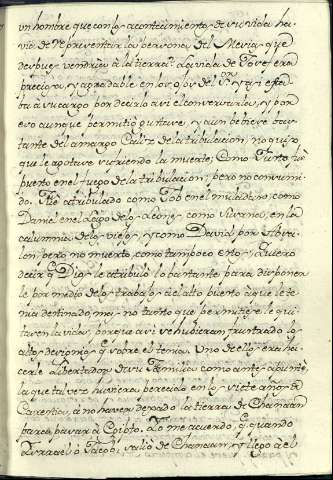 un hombre que con los acontecimientos de su vida ha-
via de Representar las personas del Mesias que
despues vendria à la tierra? La vida de Josef era
preciosa, y agradable en los ojos del Sor, y asi esta-
ba à su cargo por decirlo asi el conservarla, y por
eso aunque permitiò gustase, y aun bebiese bas-
tante del amargo Caliz de la tribulacion, no quiso
que le agotase sufriendo la muerte; Como Justo fue
puesto en el fuego de la tribulacion; pero no consumi-
do. Fue atribulado como Job en el muladar, como
Daniel en el Lago de los Leones, como Susana en la
calumnia de los viejos, y como David por Absa-
lon; pero no muerto, como tampoco estos. Quiero
decir q Dios le atribulò lo bastante para disponer
le por medio de los trabajos al alto puesto à que le te-
nia destinado, mas no tanto que permitiese le qui-
tasen la vida, porque asi se hubieran frustrado los
altos designios q sobre el tenia. Uno de ellos era ha-
cerle Libertador de su familia como ante apunte,
la que tal vez huviera perecido en los siete años de
Carestia, à no haver dexado la tierra de Chanaan
para pasar à Egipto. Yo me acuerdo, q quando
Israel ò Jacob, saliò de Chanaan, y llegò à el